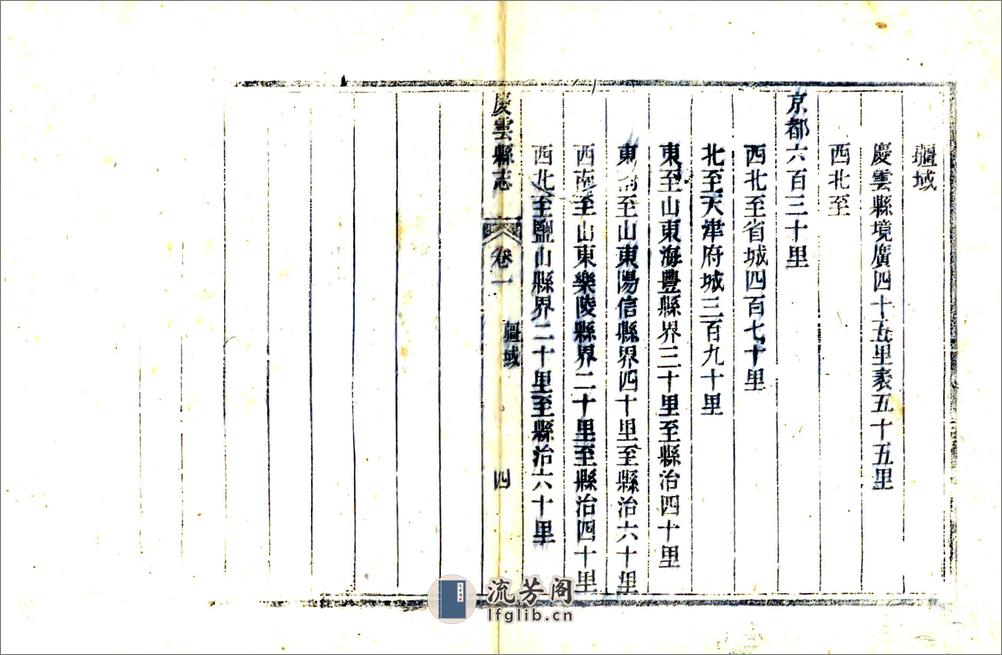 疆域
慶雲縣境廣四十五里袤五十五里
西北至
京都六百三十里
西北至省城四百七十里
北至天津府城三百九十里
東至山東海豐縣界三十里至縣治四十里
東南至山東陽信縣界四十里至縣治六十里
西南至山東樂陵縣界二十里至縣治四十里
西北至鹽山縣界二十里至縣治六十里
慶雲縣志 卷一 疆域 四
流芳阁
lfglib.cn